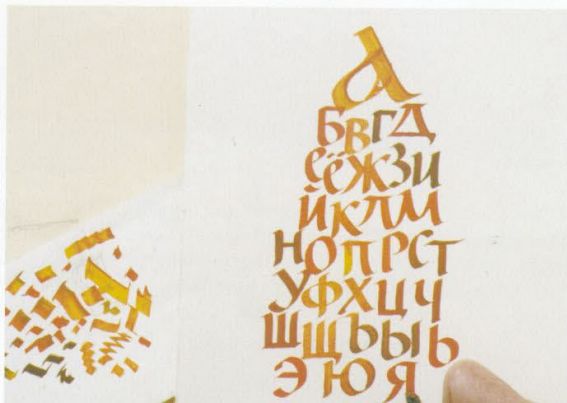 А
БВГД
ЕЁЖЗИ
ЙКЛМ
НОПРСТ
УФХЦЧ
ШЩЪЫЬ
ЭЮЯ